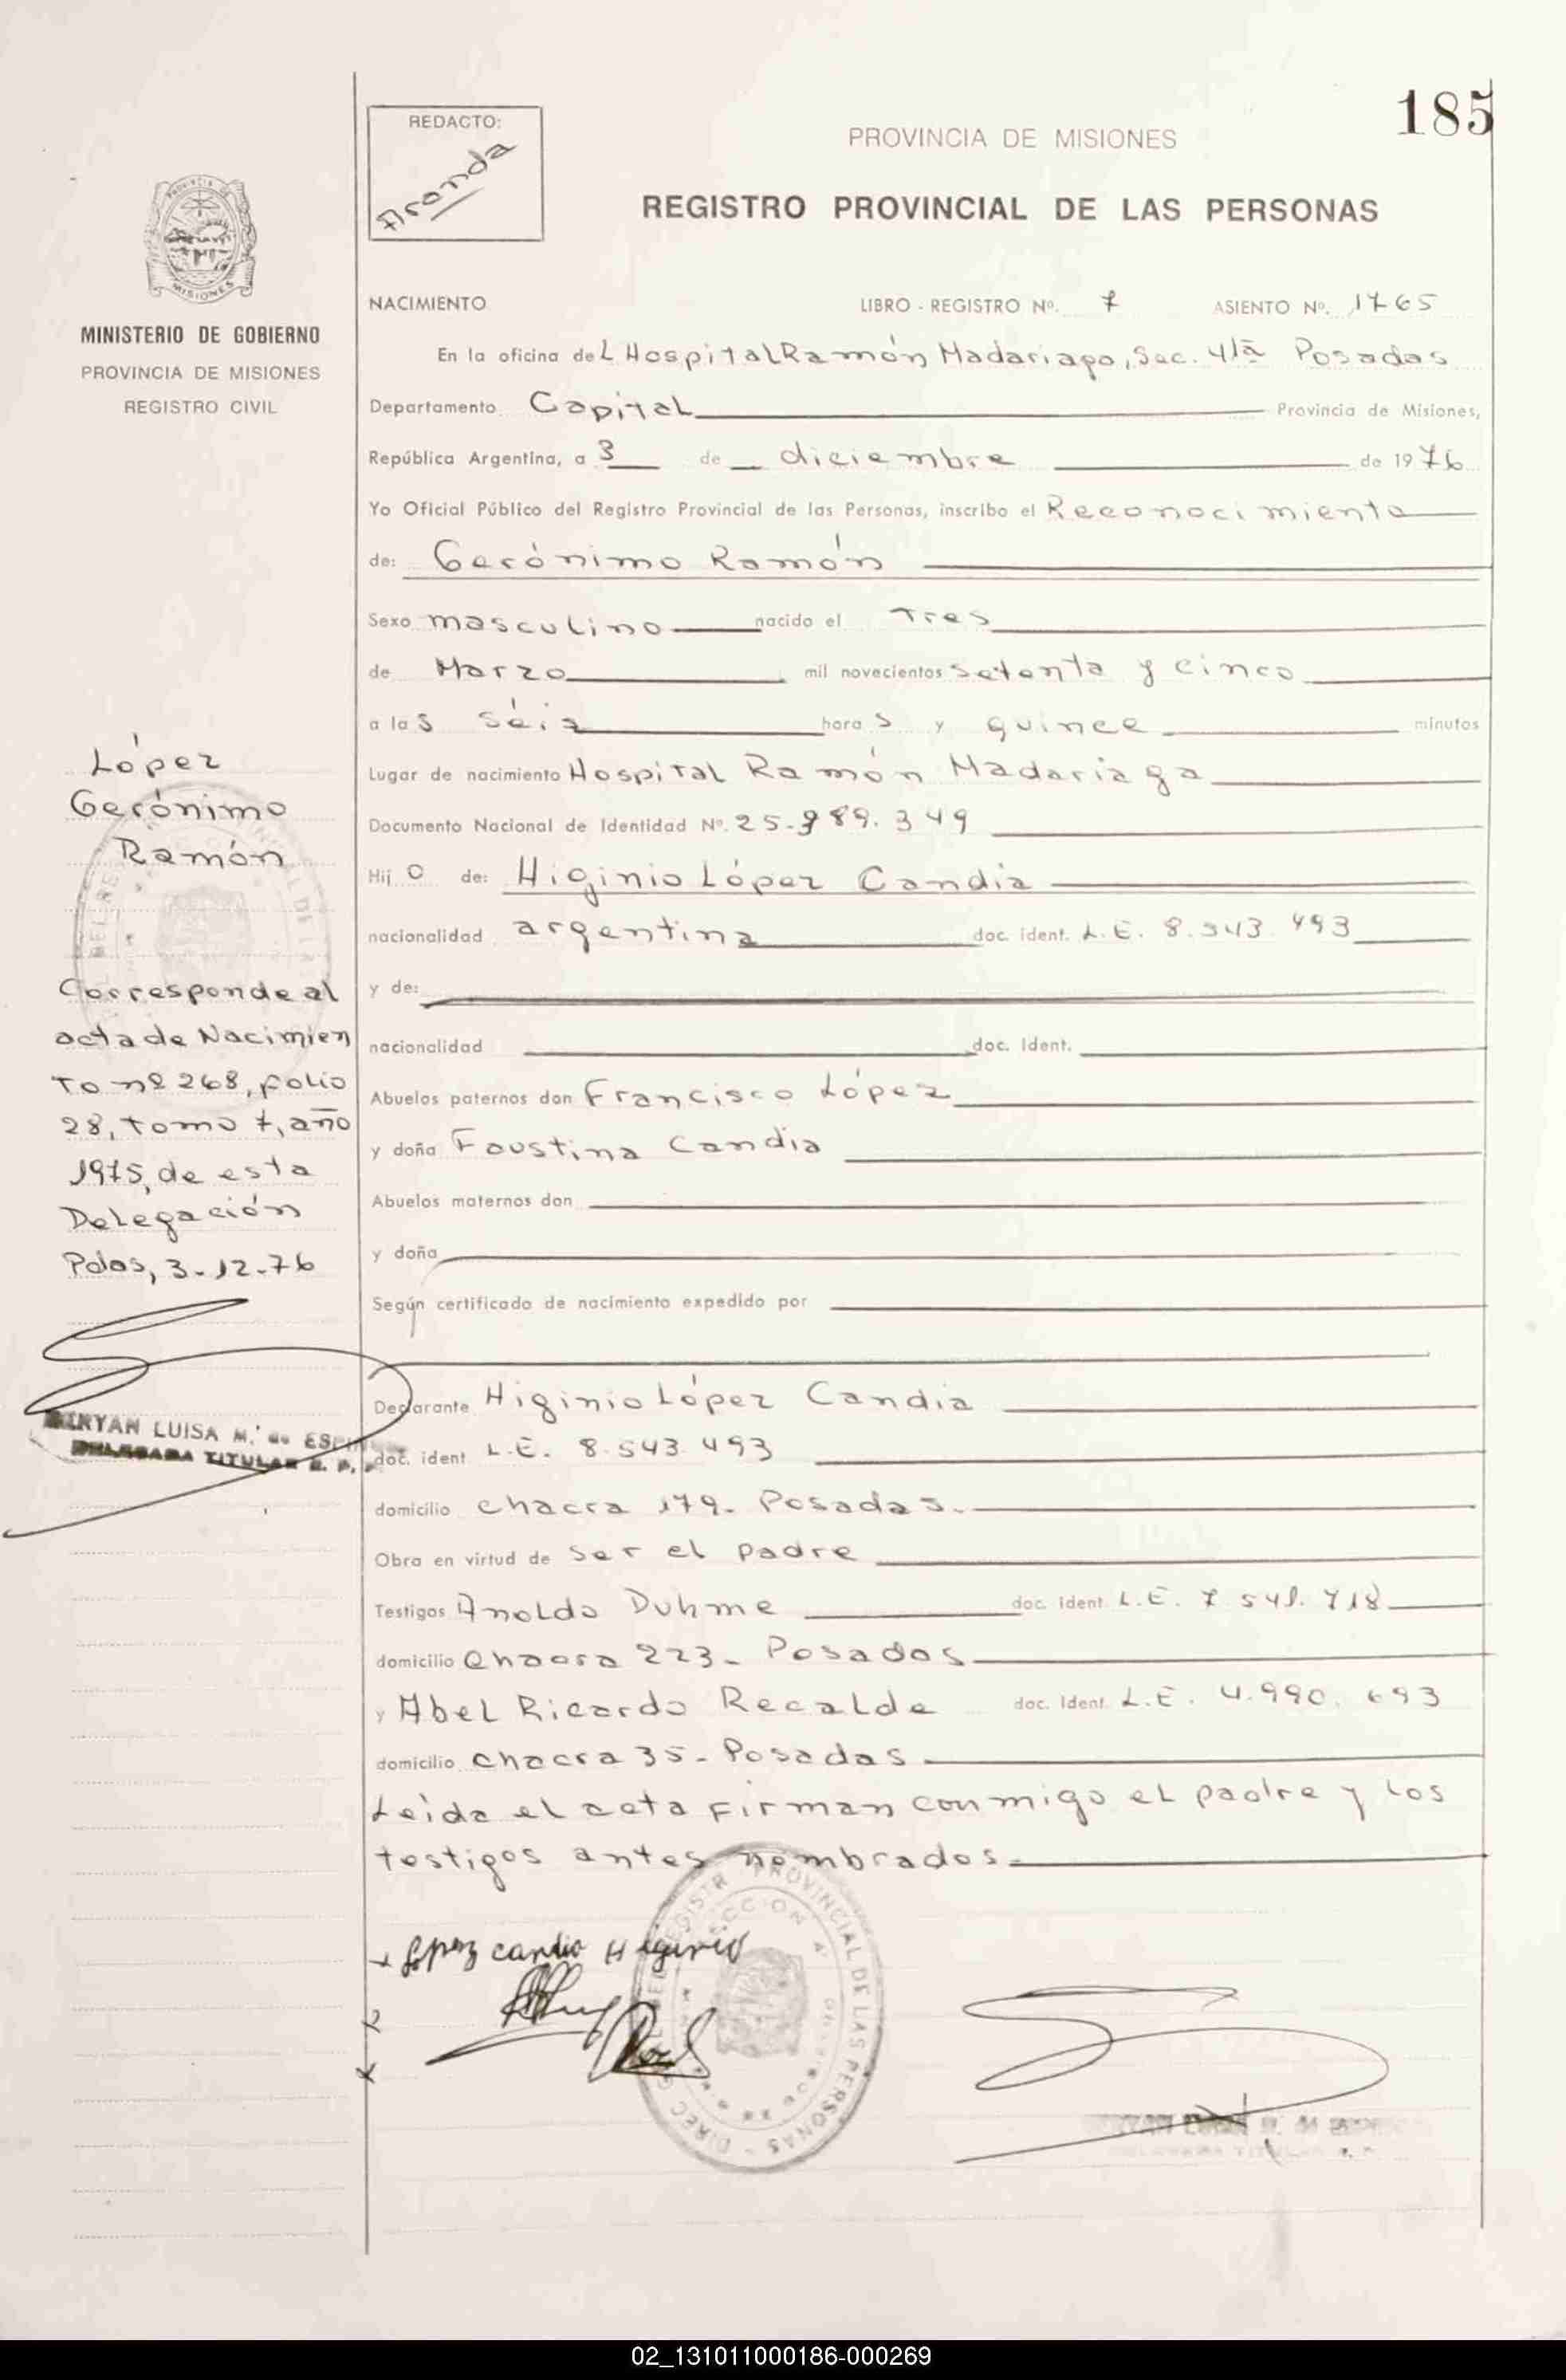 185
REDACTO:
Aranda
PROVINCIA DE MISIONES
REGISTRO PROVINCIAL DE LAS PERSONAS
MISIONES
MINISTERIO DE GOBIERNO
PROVINCIA DE MISIONES
REGISTRO CIVIL
NACIMIENTO LIBRO - REGISTRO Nº. 7 ASIENTO Nº. 1765
En la oficina deL Hospital Ramón Madariaga, Sec. 4ta Posadas
Departamento Capital Provincia de Misiones,
República Argentina, a 3 de diciembre de 1976
Yo Oficial Público del Registro Provincial de las Personas, inscribo el Reconocimiento
de: Gerónimo Ramón
Sexo masculino nacido el Tres
de Marzo mil novecientos setenta y cinco
a las séis horas y quince minutos
Lugar de nacimiento Hospital Ramón Madariaga
Documento Nacional de Identidad Nº. 25.989.349
Hijo de: Higinio López Candia
nacionalidad argentina doc. ident. L.E. 8.543.493
y de:
nacionalidad doc. Ident.
Abuelos paternos don Francisco López
y doña Faustina Candia
Abuelos maternos don
y doña
Según certificado de nacimiento expedido por
Declarante Higinio López Candia
doc. ident L.E. 8.543.493
domicilio chacra 179. Posadas.
Obra en virtud de ser el padre
Testigos Anoldo Duhme doc. ident. L.E. 7.541.718
domicilio Chacra 223 - Posadas
y Abel Ricardo Recalde doc. Ident. L.E. 4.990.693
domicilio chacra 35 - Posadas
Leída el acta firman conmigo el padre y los
testigos antes nombrados.
López
Gerónimo
Ramón
Corresponde al
acta de Nacimien
to nº 268, folio
28, tomo 7, año
1975, de esta
Delegación
Pdas, 3-12-76
LUISA M. de
DELEGADA TITULAR R. P. P.
López candia Higinio
DIREC REGISTR PROVINCIAL DE LAS PERSONAS
02_131011000186-000269